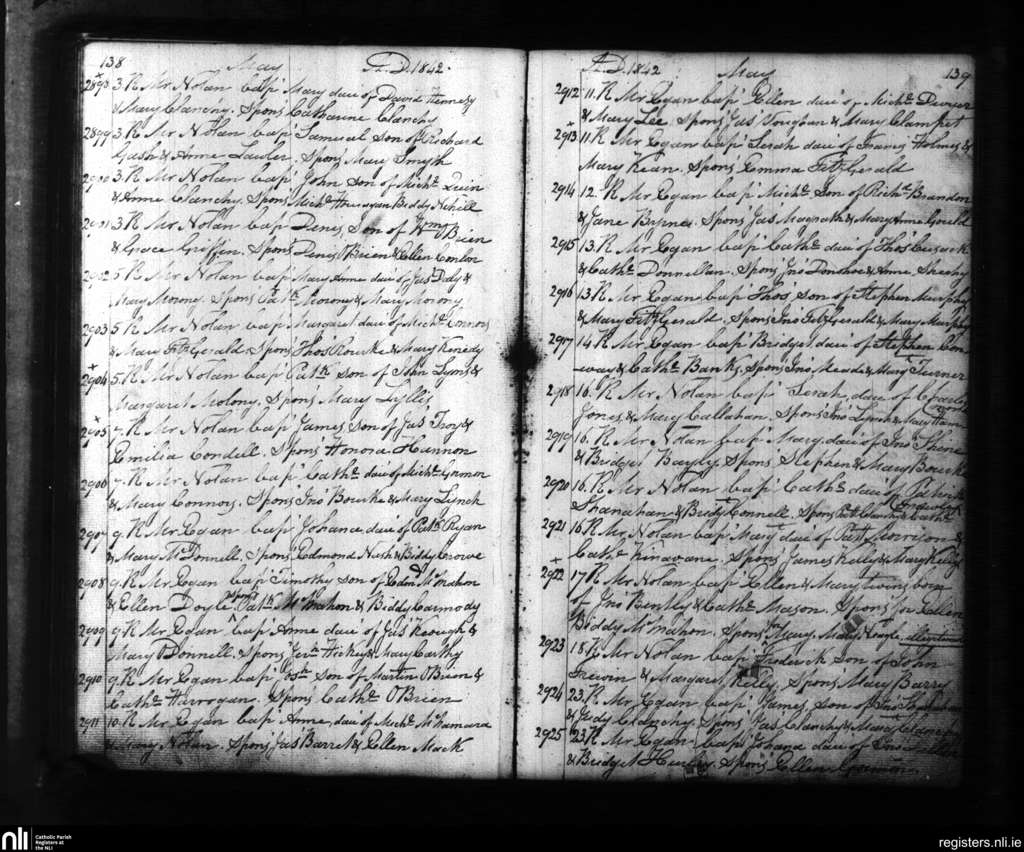 138 May A.D. 1842.
2898 3. R Mr Nolan bap Mary daur of David Hennesy
& Mary Clanchy. Spons Catharine Clanchy
2899 3. R Mr Nolan bap Samuel Son of Richard
Gash & Anne Lawler. Spons Mary Smyth
2900 3. R Mr Nolan bap John Son of Michl Quin
& Anne Clanchy. Spons Michl Horrogan Biddy Nehill
2901 3. R Mr Nolan bap Denis, Son of Wm OBrien
& Grace Griffen. Spons Denis OBrien & Ellen Conlon
2902 5 R Mr Nolan bap Mary Anne daur of Jas Daly &
Mary Morony. Spons Morony & Mary Morony
2903 5. R Mr Nolan bap Margaret daur of Michl Connors
& Mary FitzGerald. Spons Thos Rourke & Mary Kenedy
2904 5. R Mr Nolan bap Patk Son of John Lyons &
Margaret Molony. Spons Mary Lyllis
2905 7. R Mr Nolan bap James Son of Jas Troy &
Emilia Cordell. Spons Honora Hannon
2906 7. R Mr Nolan bap Cathe daur of Michl
& Mary Connors. Spons Jno Bourke & Mary Lynch
2907 9. R Mr Egan bap Johana daur of Patk Ryan
& Mary McDonnell. Spons Edmond Nash & Biddy Crowe
2908 9. R Mr Egan bap Timothy Son of Edmd McMahon
& Ellen Doyle Spons Patk McMahon & Biddy Carmody
2909 9. R Mr Egan bap Anne daur of Jas Keough &
Mary ODonnell. Spons Hickey & Mary Carthy
2910 9. R Mr Egan bap Son of Martin OBrien &
Cathe Harrogan. Spons Cathe OBrien
2911 10. R Mr Egan bap Anne, daur of Michl McNamara
& Mary Nolan. Spons Jas Barret & Ellen Mock
A.D. 1842 May 139
2912 11. R Mr Egan bap Ellen daur of Michl Dwyer
& Mary Lee. Spons Jas & Mary Clampet
2913 11. R Mr Egan bap Serah daur of Holmes &
Mary Kean. Spons Emma FitzGerald
2914 12. R Mr Egan bap Michl Son of Richd Brandon
& Jane Byrnes. Spons Jas Magrath & Mary Anne Gould
2915 13. R Mr Egan bap Cathe daur of Thos Cusack
& Cathe Donnellan. Spons Jno Donohoe & Anne Sheehy
2916 13. R Mr Egan bap Thos Son of Stephen Murphy
& Mary FitzGerald. Spons Jno FitzGerald & Mary Murphy
2917 14. R Mr Egan bap Bridget daur of Stephen Con
way & Cathe Banks. Spons Jno Meade & Mary Turner
2918 16. R Mr Nolan bap Serah, daur of Charles
Jones, & Mary Callahan. Spons Jno Lynch & Mary
2919 16. R Mr Nolan bap Mary, daur of Jno
& Bridget Bayly. Spons Stephen & Mary Bourke
2920 16. R Mr Nolan bap Cathe daur of Patrick
Shanahan & Bridy Connell. Spons
2921 16 R Mr Nolan bap Mary daur of Patt Morrison &
Cathe Kinavane. Spons James Kelly & Mary
2922 17 R Mr Nolan bap Ellen & Mary twins born
of Jno Bently & Cathe Mason. Spons for Ellen
Biddy McMahon. Spons for Mary, Mary
2923 18 R Mr Nolan bap Frederick Son of John
& Margaret Kelly. Spons Mary Barry
2924 23. R Mr Egan bap James, Son of Jno
& Judy Clanchy. Spons Jas Clanchy & Mary
2925 23. R Mr Egan bap Johana daur of Jno
& Bridget Hurley. Spons Ellen
nli Catholic Parish
Registers at
the NLI
registers.nli.ie